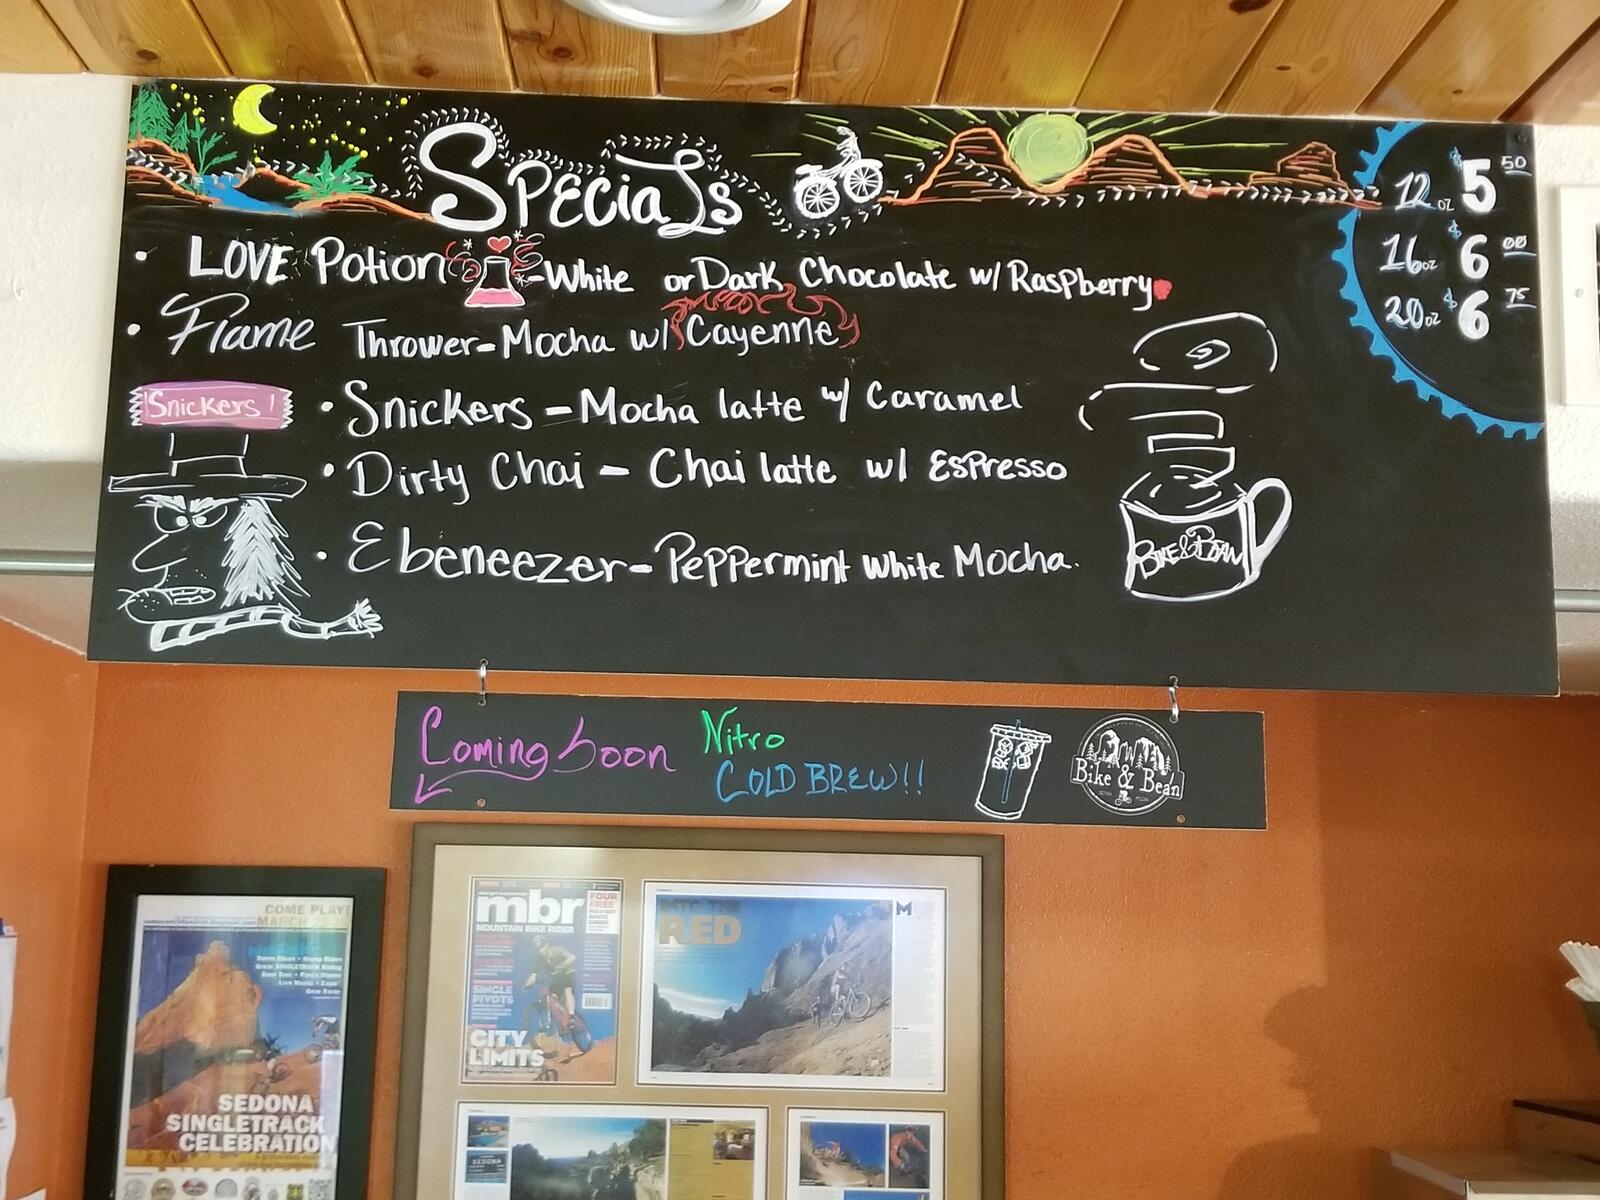 Specials
12 oz $5 50
16 oz $6 00
20 oz $6 75
• LOVE Potion - White or Dark Chocolate w/ Raspberry
• Flame Thrower - Mocha w/ Cayenne
Snickers!
• Snickers - Mocha latte w/ Caramel
• Dirty Chai - Chai latte w/ Espresso
• Ebeneezer - Peppermint White Mocha.
BIKE & BEAN
Coming Soon Nitro
COLD BREW!!
Bike & Bean
COME PLAY!
MARCH
SEDONA
SINGLETRACK
CELEBRATION
mbr
MOUNTAIN BIKE RIDER
FOUR
FREE
SINGLE
PIVOTS
CITY
LIMITS
INTO THE
RED
M